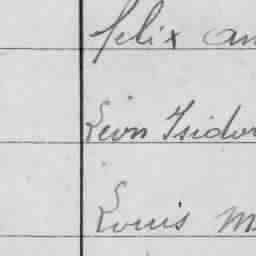 felix an
Léon Isidor
Louis M